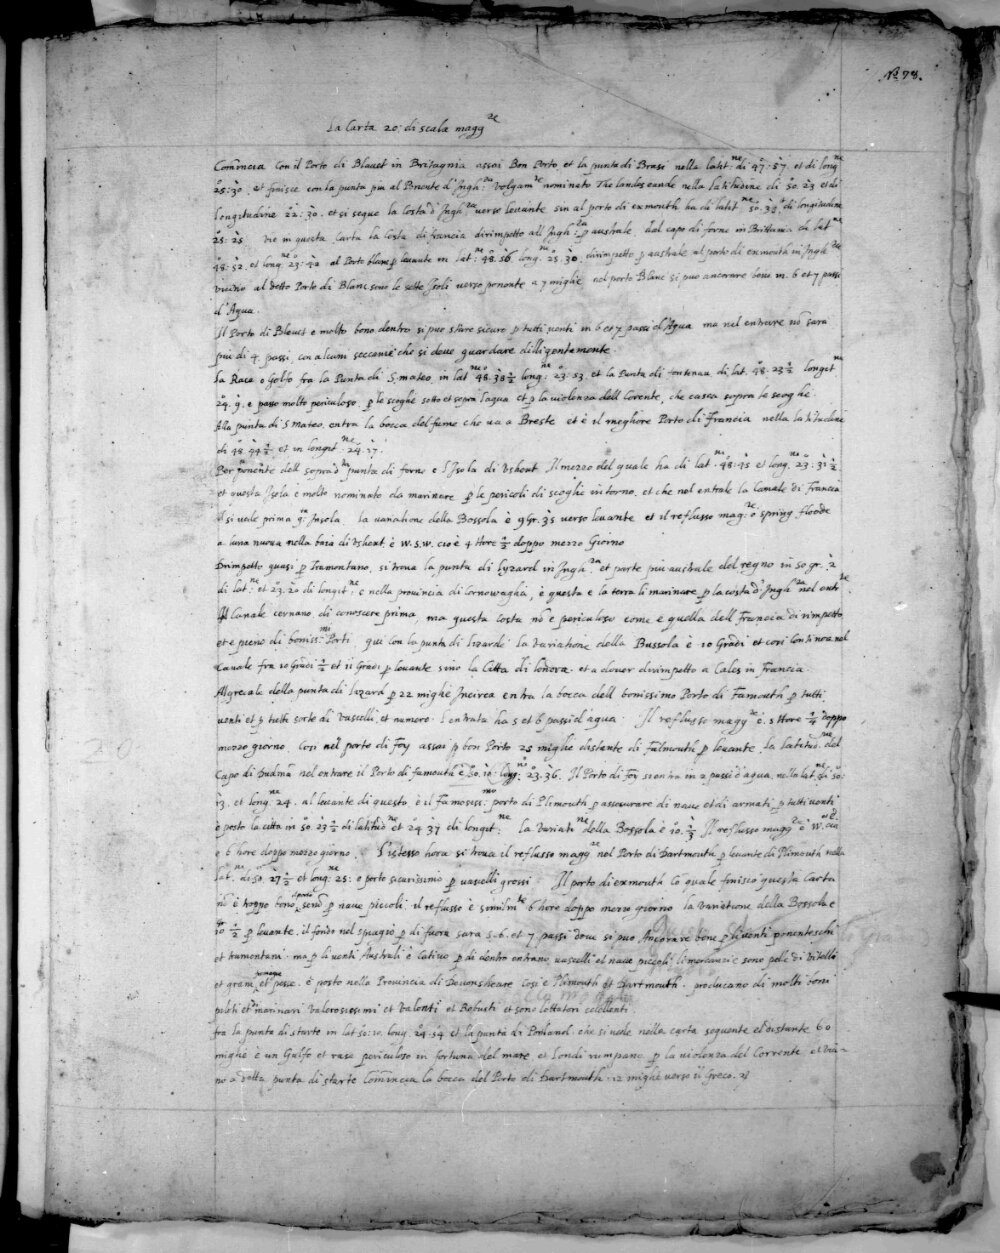 No 78.
La Carta 20: di scala maggre
Comincia con il Porto di Blauet in Britagnia assai Bon Porto, et la punta di Brasi nella latitne di 47:57, et di longne
25:30, et finisce con la punta piu al Ponente d'Inghra uolgamte nominato The landes eande nella latitudine di 50.23 et di
longitudine 22:30. et si segue la Costa d'Inghra uerso leuante sin al porto di exmouth ha di latitne 50.33, di longitudine
25:25 Vie in questa Carta la Costa di francia dirimpetto all Inghra p australe, dal capo di forne in Brittania di latne
48:52, et longne 23:42 al Porto blanc p leuante in latne 48.56 longne 25.30. dirimpetto p australe al porto di exmouth in Inghra
uicino al detto Porto di Blanc sono le sette Isoli uerso ponente a 7 miglie nel porto Blanc si puo ancorare bene in 6 et 7 passi
d'Agua.
Il Porto di Blauet e molto bono dentro si puo stare sicuro p tutti uenti in 6 et 7 passi d'Agua ma nel entrare nō sara
piu di 4 passi, con alcuni seccanie che si deue guardare dilligentemente.
La Race o Golfo fra la Punta di S. mateo, in latne 48.38½ longne 23.53. et la Punta di fontenau di lat. 48.23½ longitne
24.9. e passo molto periculoso, p le scoglie sotto et sopra l'agua et p la uiolenza dell Corente, che casca sopra le scoglie.
Alla punta di S Mateo, entra la bocca del fiume che ua a Breste et è il megliore Porto di Francia nella latitudine
di 48.44½ et in longitne 24.17.
Per ponente dell soprada punta di forne e l'Isola di Vshent Il mezzo del quale ha di latne 48:45 et longne 23:31½
et questa Isola è molto nominato da marinare p le pericoli di scoglie intorno, et che nel entrare la Canale di Francia
il si uede prima qta Insola la uariatione della Bossola è 9 Gr. 35 uerso leuante et il reflusso magre o spring floode
a luna nuoua nella baia di Vshent, è W.S.W. cio è 4 Hore ½ doppo mezzo Giorno
Drimpetto quasi p Tramontano, si troua la punta di Lyzard in Inghra, et parte piu australe del regno in 50 gr. 2
di latne et 23.20 di longitne, e nella prouincia di Cornowaghia, è questa e la terra li marinare p la costa d'Inghra nel entre
Il Canale cercano di conoscere prima, ma questa costa nō è periculoso come e quella dell Francia di rimpetto
et e pieno di bonissmi Porti, qui con la punta di Lizarde la Variatione della Bussola è 10 Gradi et cosi continoa nel
Canale fra 10 Gradi ½ et 11 Gradi p leuante sino la Citta di lōnora et a douer dirimpetto a Cales in Francia.
Al greculo della punta di Lizara p 22 miglie Incirca entra la bocca dell bonissimo Porto di Famouth p tutti
uenti et p tutti sorte di Vascelli et numero. l'entrata ha 5 et 6 passi d'agua. Il reflusso maggre è. 5 Hore ¼ doppo
mezzo giorno. Cosi nel porto di Foy assai p bon Porto 25 miglie distante di falmouth p leuante. La latitudne del
Capo di Dudmā nel entrare il Porto di famouth è 50.10. longni 23.36. Il Porto di Foy si entra in 2 passi d'agua, nella latne di 50:
13. et longne 24. al leuante di questo, è il Famosissmo porto di Plimouth p assecurare di naue et di armati, p tutti uenti
è posto la citta in 50 23½ di latitudne et 24 37 di longitne. la Variatne della Bossola è 10.⅓ Il reflusso maggre è W. cio
e 6 hore doppo mezzo giorno. L'istesso hora si troua il reflusso maggre nel Porto di Dartmouth p leuante di Plimouth nella
latne di 50. 27½ et longne 25: e porto sicurissimo p uascelli grossi Il porto di exmouth Co quale finisco questa Carta
nō è troppo bono il porto senō p naue piccoli il reflusso è similmte 6 hore doppo mezzo giorno la Variatione della Bossola e
10½ p leuante, il fondo nel spiagio p di fuora sara 5.6. et 7 passi doue si puo Ancorare bene p li uenti ponenteschi
et tramontani. ma p li uenti Australi è Catiuo p di dentro entrano uascelli et naue piccoli li mercanzie sono pele di Vitelli
et grani, et pomagie pesce. è posto nella Prouincia di Deuonsheare cosi e Plimouth et Dartmouth. producano di molti boni
piloti et marinari Valerosissimi et Valenti et Robusti et sono lottatori cellenti.
fra la punta di starte in lat 50:10. long. 24.54 et la punta di Portland, che si uede nella carta sequente et distante 60
miglie è un Gulfo et rase periculoso in fortuna del mare et l'ondi rumpano p la uiolenza del Corrente. et uici-
no a detta punta di starte Comincia la bocca del Porto di Dartmouth. 12 miglie uerso il Greco.